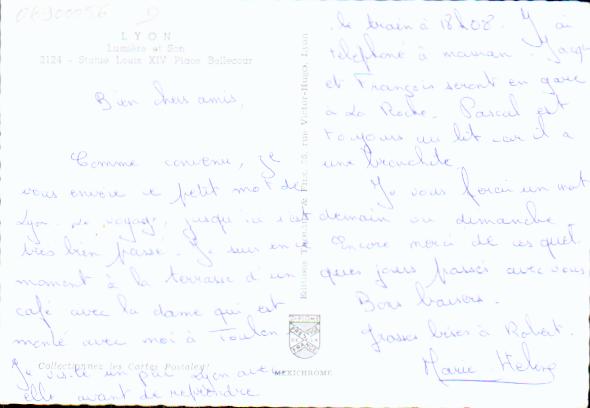 06900056 D
LYON
Lumière et Son
2124 - Statue Louis XIV Place Bellecour
Bien chers amis,
Comme convenu, je
vous envoie ce petit mot de
Lyon. Le voyage, jusqu'ici s'est
très bien passé. Je suis en ce
moment à la terrasse d'un
café avec la dame qui est
montée avec moi à Toulon.
Je visite un peu Lyon avec
elle avant de reprendre
le train à 18h08. J'ai
téléphoné à maman. Jacques
et François seront en gare
à La Roche. Pascal est
toujours au lit car il a
une bronchite.
Je vous ferai un mot
demain ou dimanche
Encore merci de ces quel
ques jours passés avec vous
Bons baisers.
Grosses bises à Robert.
Marie Hélène
Collectionnez les Cartes Postales!
MEXICHROME
Editions & Fils, rue Victor-Hugo, Lyon